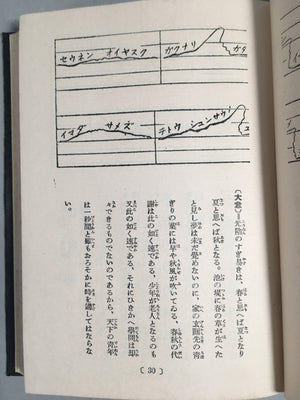 セウネン オイヤスク ガクナリ ガタ
イマダ サメズ チトウ シュンサウノ ユ
〔大意〕＝光陰のすぎ易きは、春と思へば夏となり
夏と思へば秋となる。池の堤に春の草が生へた
と見し夢は未だ覺めないのに、家の玄關先の靑
ぎりの葉には早や秋風が吹いてゐる、春秋の代
謝は此の如く速である、少年が老人となるのも
又此の如く速である、それにひきかへ學問は却
々できるものでないのであるから、天下の靑年
は一秒間と雖もおろそかに時を過してはならな
い。
〔30〕